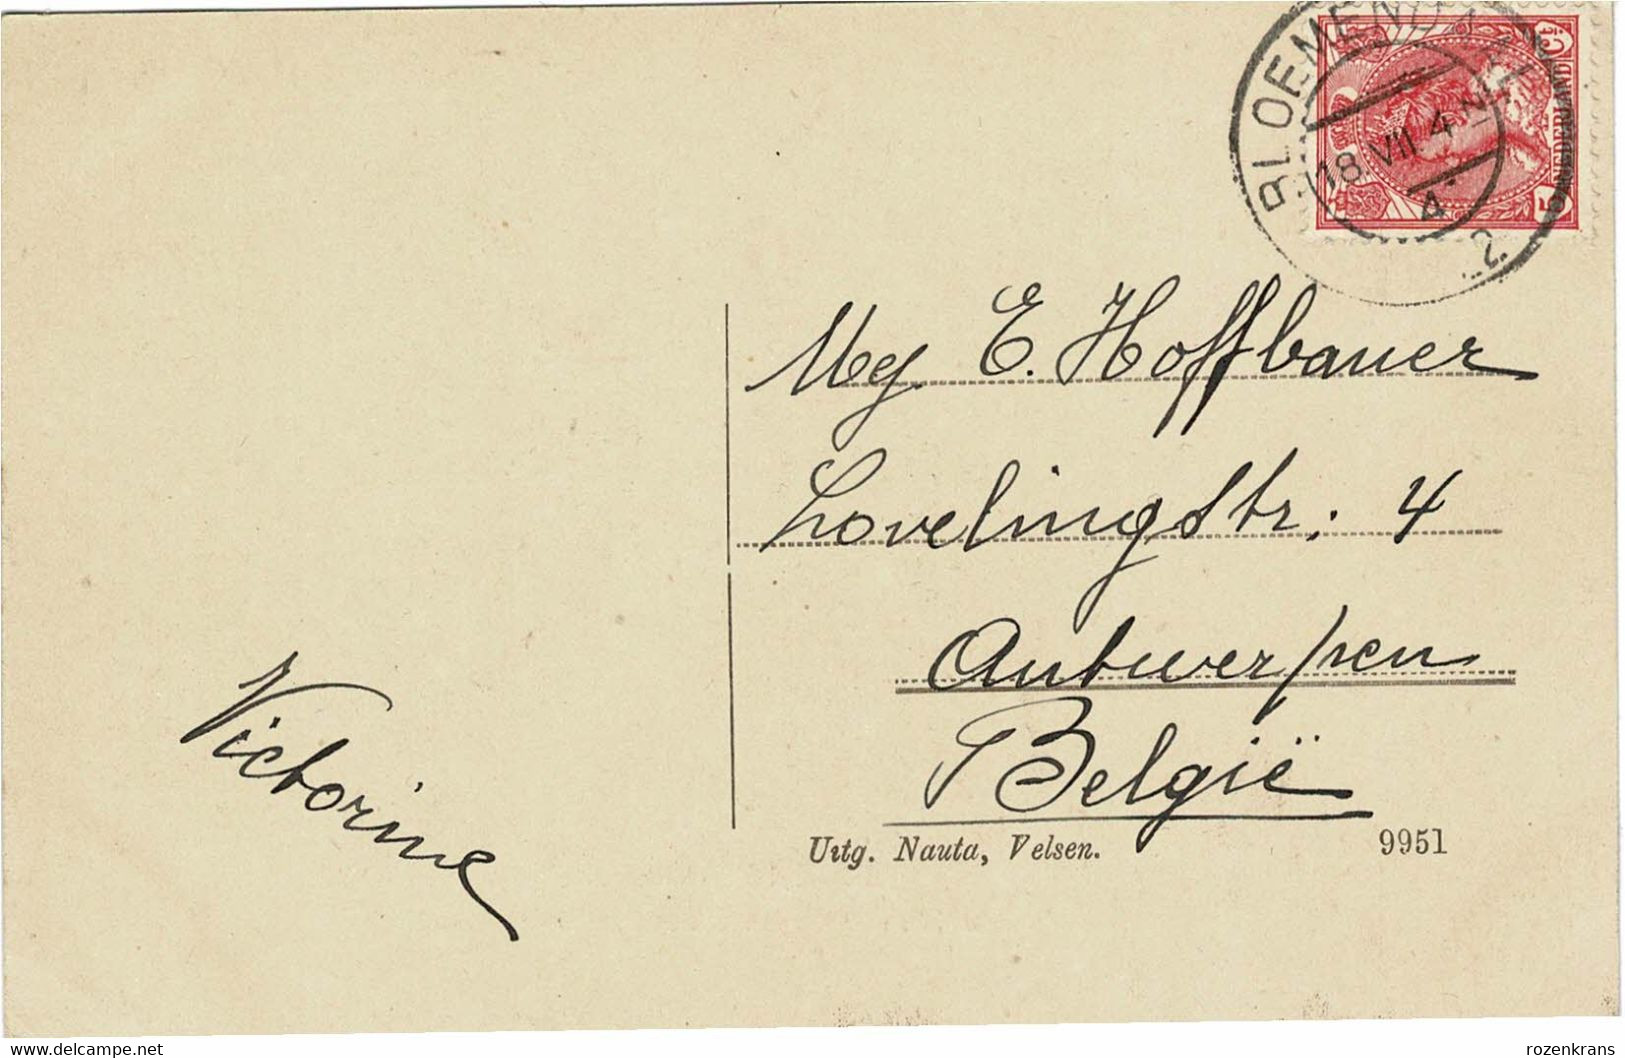 BLOEMENDAAL
18 VII 4-5N
4
2
NEDERLAND
5 Ct
Mej E. Hoffbauer
Lovelingstr: 4
Antwerpen
België
Victorine
Uitg. Nauta, Velsen. 9951
www.delcampe.net
rozenkrans